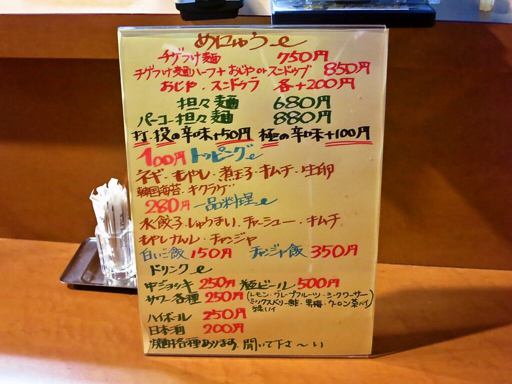 めにゅう
チゲつけ麺 750円
チゲつけ麺ハーフ+おじやorスンドゥブ 850円
おじや・スンドゥブ 各+200円
担々麺 680円
パーコー担々麺 880円
打・投の辛味+50円 極の辛味+100円
100円 トッピング
ネギ・もやし・煮玉子・キムチ・生卵
韓国海苔・キクラゲ
280円 一品料理
水餃子・しゅうまい・チャーシュー・キムチ
もやしナムル・チャンジャ
白いご飯 150円 チャンジャ飯 350円
ドリンク
中ジョッキ 250円 瓶ビール 500円
サワー各種 250円 (レモン・グレープフルーツ・シークワーサー
ミックスベリー酢・黒梅・ウーロン茶ハイ
ハイボール 250円
日本酒 200円
焼酎各種あります。聞いて下さ〜い